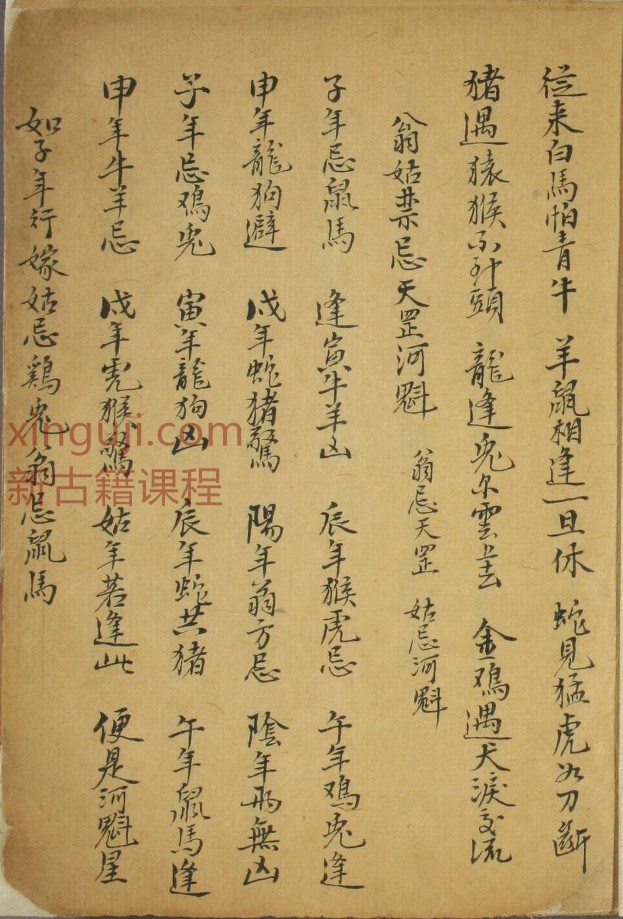 從来白馬怕青牛 羊鼠相逢一旦休 蛇見猛虎如刀斷
猪遇猿猴不到頭 龍逢兎尔雲上去 金鷄遇犬淚交流
翁姑禁忌天罡河魁 翁忌天罡 姑忌河魁
子年忌鼠馬 逢寅牛羊凶 辰年猴虎忌 午年鷄兎逢
申年龍狗避 戌年蛇猪驚 陽年翁方忌 陰年而無凶
子年忌鷄兎 寅年龍狗凶 辰年蛇共猪 午年鼠馬逢
申年牛羊忌 戌年虎猴驚 姑年若逢此 便是河魁星
如子年行嫁姑忌鷄兎翁忌鼠馬
xinguji.com
新古籍课程